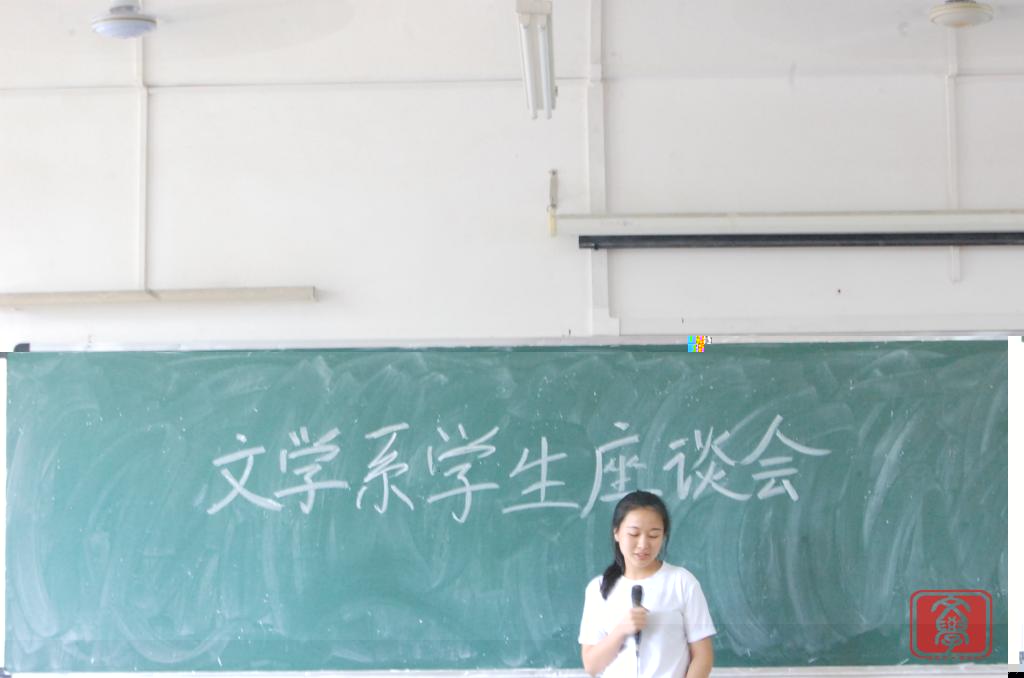 文学系学生座谈会
文學